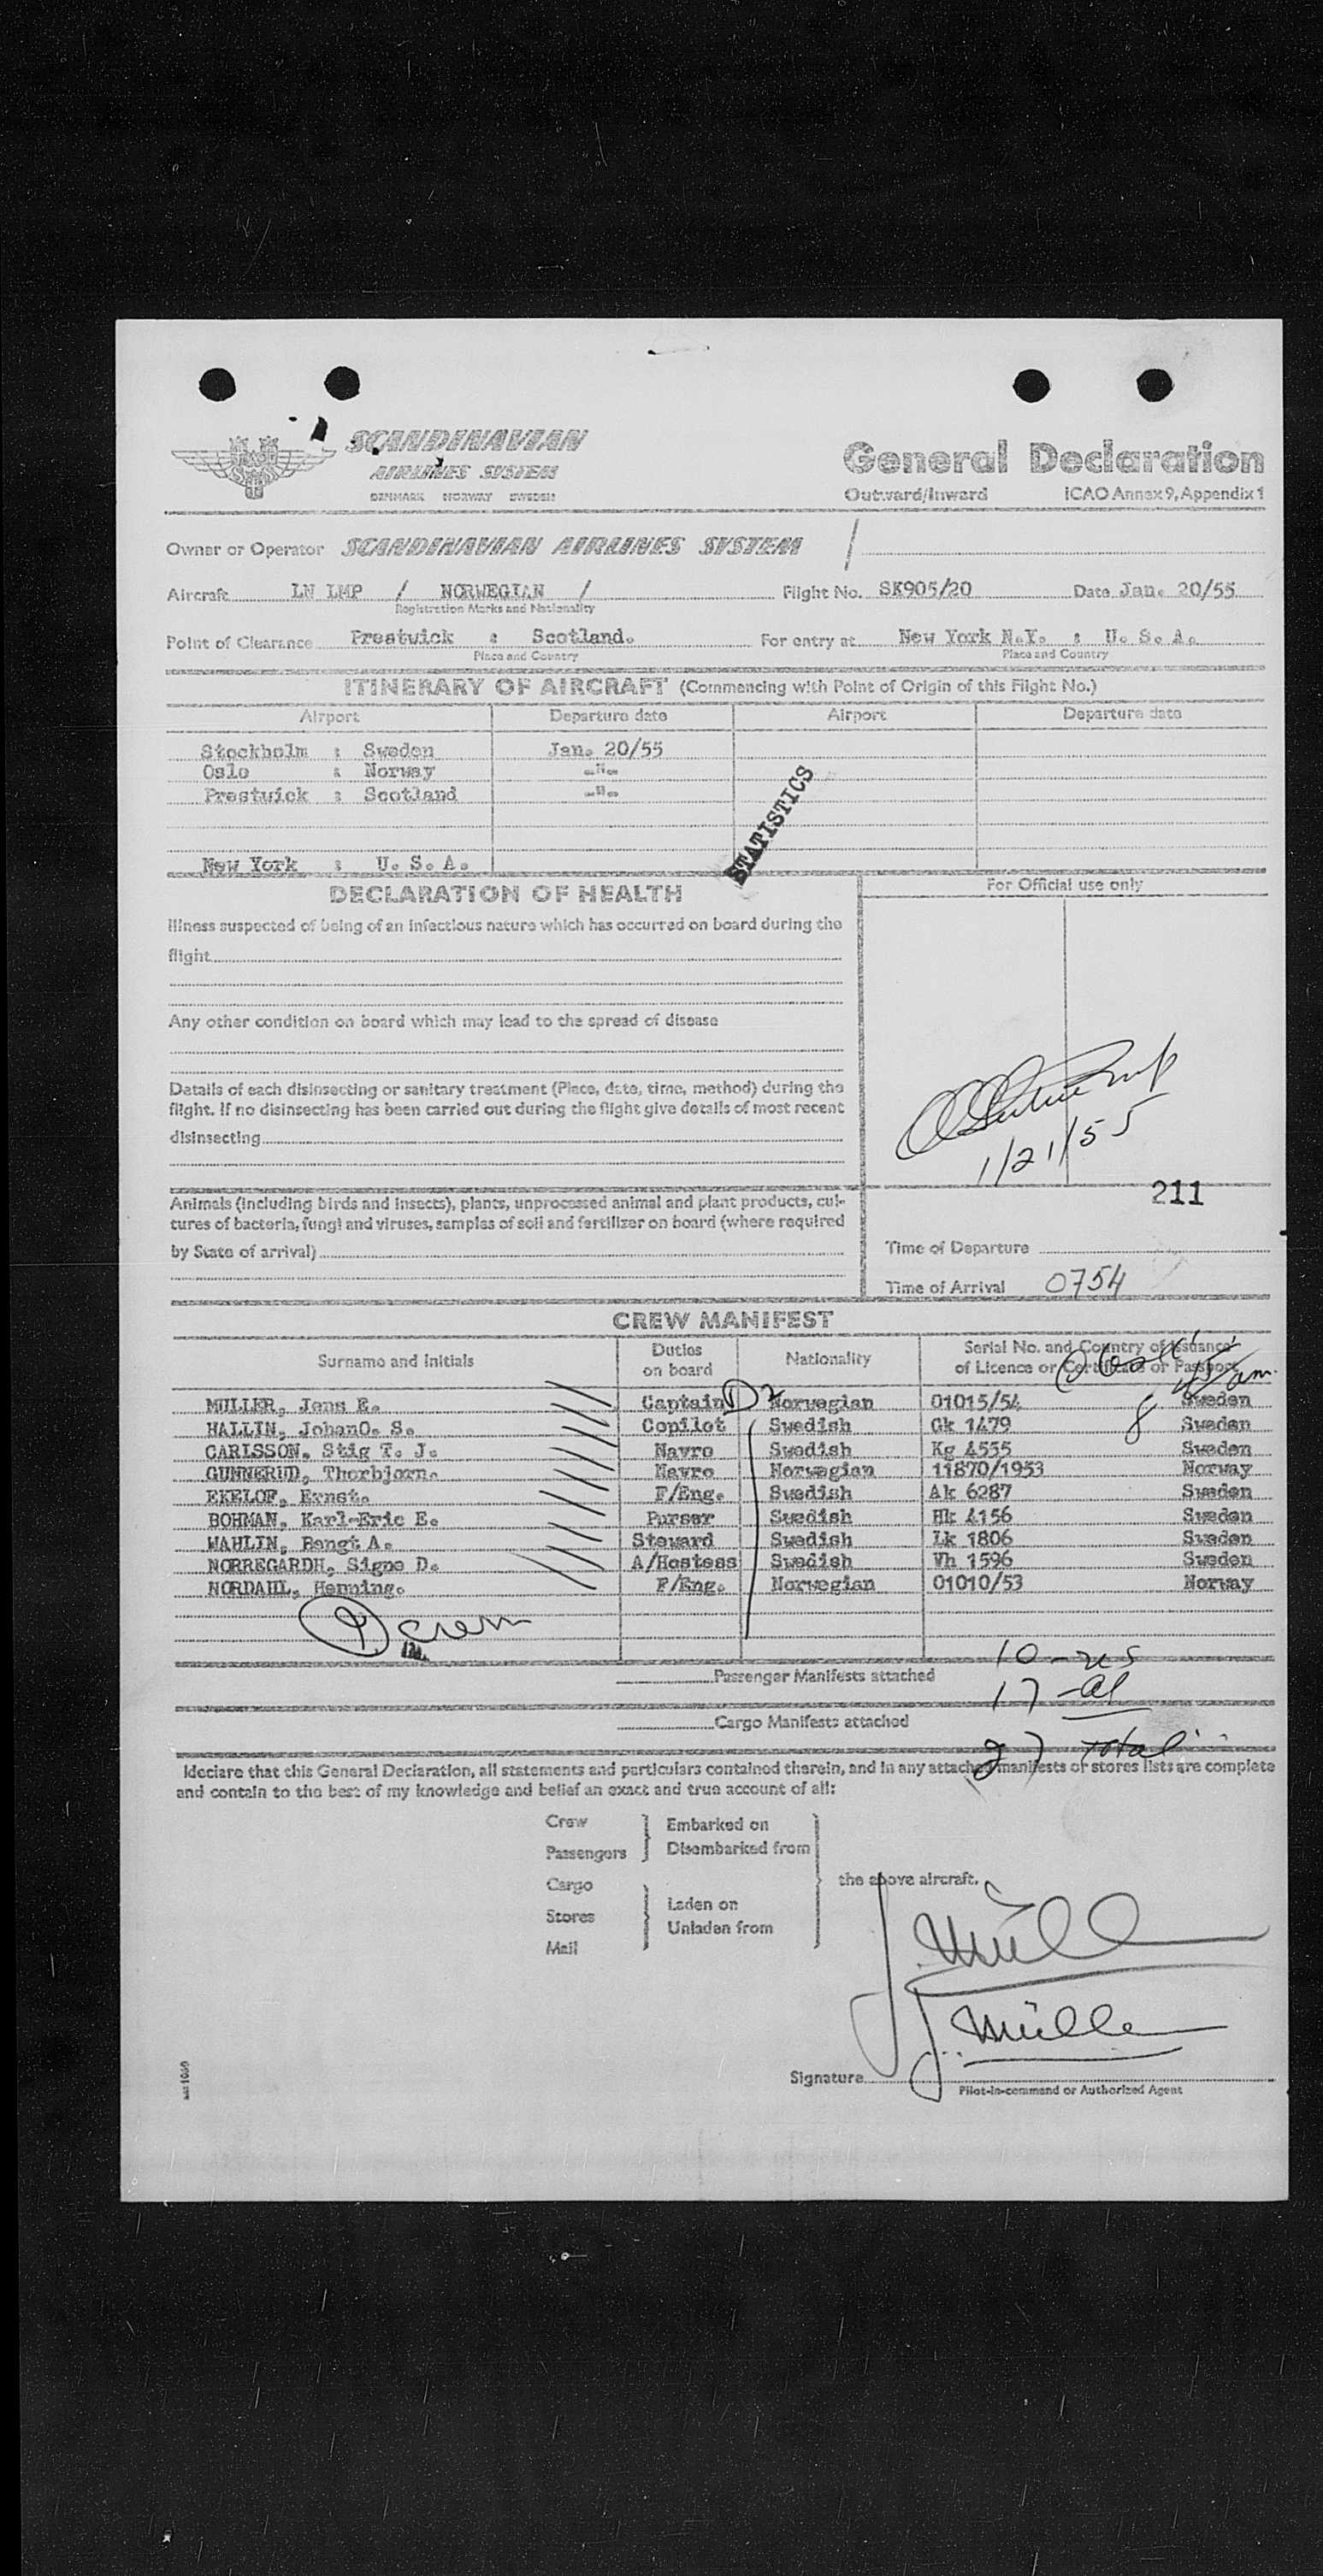 SCANDINAVIAN
AIRLINES SYSTEM
DENMARK NORWAY SWEDEN
General Declaration
Outward/Inward ICAO Annex 9, Appendix 1
Owner or Operator SCANDINAVIAN AIRLINES SYSTEM /
Aircraft LN LMP / NORWEGIAN / Flight No. SK905/20 Date Jan. 20/55
Registration Marks and Nationality
Point of Clearance Prestwick : Scotland. For entry at New York N.Y. : U. S. A.
Place and Country Place and Country
ITINERARY OF AIRCRAFT (Commencing with Point of Origin of this Flight No.)
Airport Departure date Airport Departure date
Stockholm : Sweden Jan. 20/55
Oslo : Norway -"-
Prestwick : Scotland -"-
STATISTICS
New York : U. S. A.
DECLARATION OF HEALTH
For Official use only
Illness suspected of being of an infectious nature which has occurred on board during the
flight
Any other condition on board which may lead to the spread of disease
Details of each disinsecting or sanitary treatment (Place, date, time, method) during the
flight. If no disinsecting has been carried out during the flight give details of most recent
disinsecting
1/21/55
211
Animals (including birds and insects), plants, unprocessed animal and plant products, cul-
tures of bacteria, fungi and viruses, samples of soil and fertilizer on board (where required
by State of arrival)
Time of Departure
Time of Arrival 0754
CREW MANIFEST
Surname and initials Duties on board Nationality Serial No. and Country of Issuance of Licence or Certificate or Passport
MULLER, Jens E. Captain Norwegian 01015/54 Sweden
HALLIN, JohanO. S. Copilot Swedish Gk 1479 Sweden
CARLSSON, Stig T. J. Navro Swedish Kg 4535 Sweden
GUNNERUD, Thorbjorn. Navro Norwegian 11870/1953 Norway
EKELOF, Ernst. F/Eng. Swedish Ak 6287 Sweden
BOHMAN, Karl-Eric E. Purser Swedish Hk 4156 Sweden
WAHLIN, Bengt A. Steward Swedish Lk 1806 Sweden
NORREGARDH, Signe D. A/Hostess Swedish Vh 1596 Sweden
NORDAHL, Henning. F/Eng. Norwegian 01010/53 Norway
9 crew
10 - us
Passenger Manifests attached
17 - al
Cargo Manifests attached
27 total
I declare that this General Declaration, all statements and particulars contained therein, and in any attached manifests or stores lists are complete
and contain to the best of my knowledge and belief an exact and true account of all:
Crew
Passengers
Embarked on
Disembarked from
Cargo
Stores
Mail
Laden on
Unladen from
the above aircraft.
J. Müller
J. Müller
Signature
Pilot-in-command or Authorized Agent